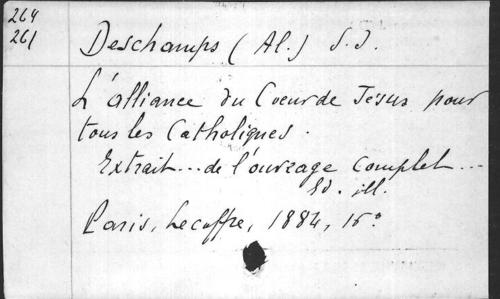 264
261
Deschamps (Al.) S.J.
L'alliance du Coeur de Jésus pour
tous les Catholiques.
Extrait... de l'ouvrage complet...
Ed. ill.
Paris, Lecoffre, 1884, 16°